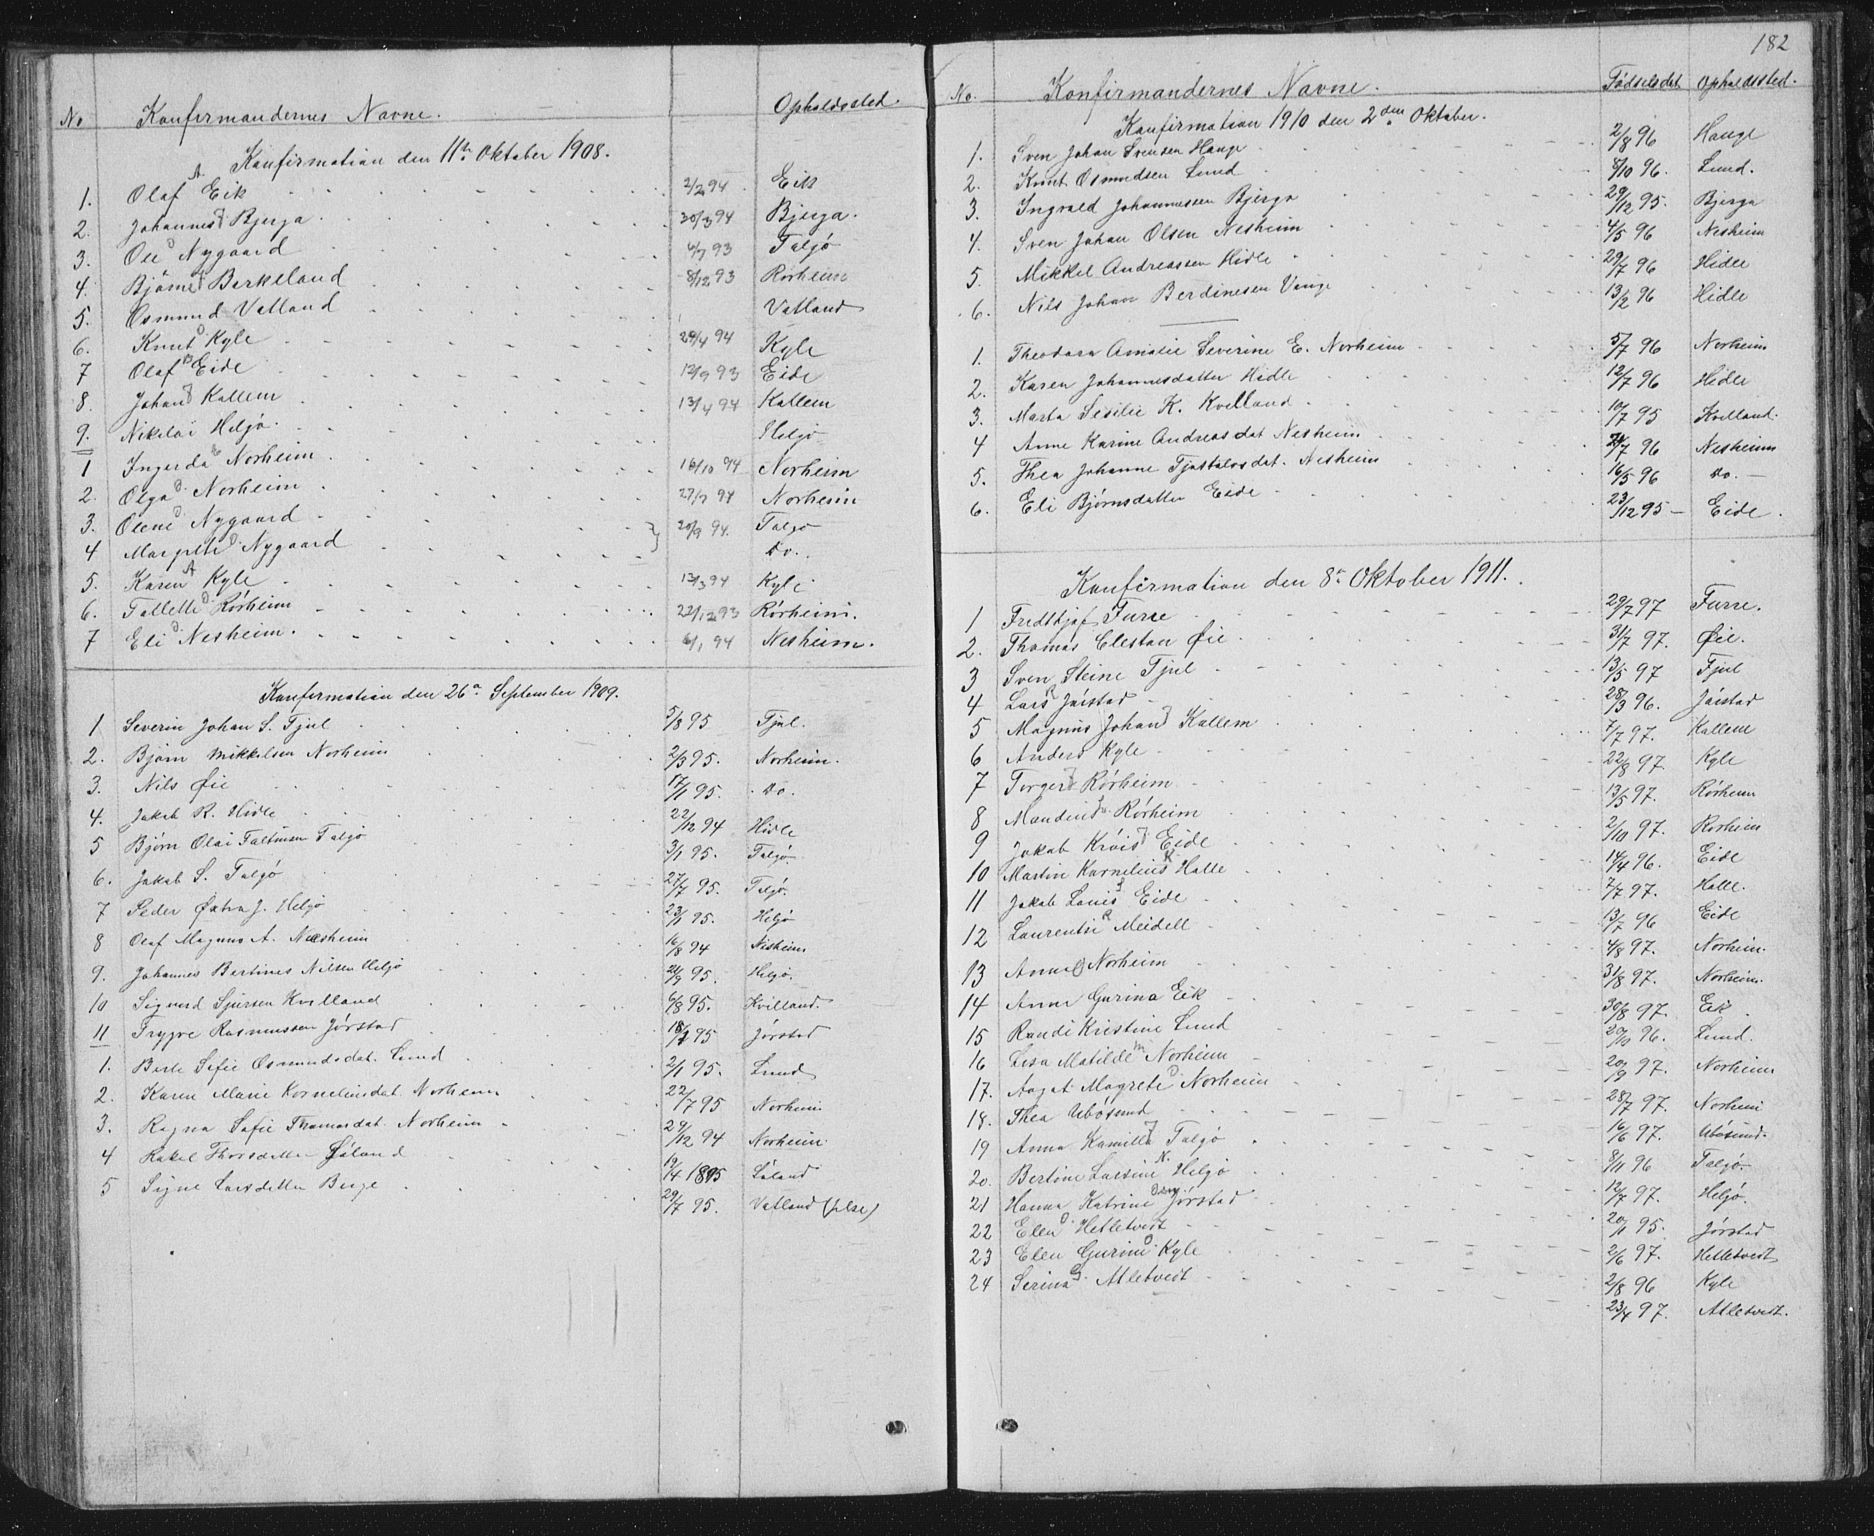 No Konfirmandernes Navne. Opholdssted.
Konfirmation den 11te Oktober 1908.
1. Olaf A. Eik 2/2 94 Eik
2. Johannes J Bjerga 30/3 94 Bjerga.
3. Ole Nygaard 4/7 93 Talgö
4. Bjørne Berkeland 8/12 93 Rörheim
5. Osmund Vatland Vatland
6. Knut O Kyle 29/4 94 Kyle
7 Olaf B Eide 12/9 93 Eide
8. Johan J Kallem 13/4 94 Kallem
9. Nikolai Heljö. Heljö
1 Ingerda Norheim 16/10 94 Norheim
2. Olga Norheim 27/7 94 Norheim
3. Olene Nygaard 20/9 94 Talgö
4 Margrete Nygaard do.
5. Karen A Kyle 13/3 94 Kyle
6. Tallette Rörheim 22/12 93 Rörheim.
7 Eli Nesheim. 6/1 94 Nesheim.
Konfirmation den 26de September 1909.
1 Severin Johan S. Fjul 5/8 95 Fjul.
2. Bjørn Mikkelsen Norheim 2/3 95. Norheim.
3. Nils Øie 17/1 95. do.
4. Jakob R. Hidle 22/12 94 Hidle
5 Bjørn Olai Taltusen Talgö 3/1 95. Talgö
6. Jakob S. Talgö 27/7 95. Talgö.
7 Peder J. Heljö 23/1 95. Heljö
8 Olaf Magnus A. Nesheim 16/8 94 Nesheim
9. Johannes Bertines Nilsen Heljö 95. Heljö.
10 Sigurd Sjursen Kvilland 6/8 95. Kvilland.
11 Trygve Rasmussen Jörstad 95 Jörstad
1. Berte Sofie Osmundsdat. Lund 2/1 95. Lund
2. Karen Marie Korneliusdat Norheim 22/7 95 Norheim
3. Ragna Sofie Thomasdat. Norheim 29/12 94 Norheim.
4 Rakel Thorsdatter 19/4 1895
5 Signe Larsdatter Berge 29/7 95. Vatland
182
No. Konfirmandernes Navne. Fødselsdat. Opholdssted.
Konfirmation 1910 den 2den Oktober.
1. Sven Johan Svensen Hauge 2/8 96 Hauge
2. Knut Osmundsen Lund 8/10 96. Lund.
3. Ingvald Johannessen Bjerga 29/12 95. Bjerga
4. Sven Johan Olsen Nesheim 4/5 96 Nesheim
5. Mikkel Andreassen Hidle 29/7 96 Hidle
6. Nils Johan Berdinesen Vange 13/2 96 Hidle
1. Theodora Amalie Severine E. Norheim 5/7 96 Norheim
2. Karen Johannesdatter Hidle 12/7 96 Hidle
3. Marta Sesilie K. Kvilland 10/7 95 Kvilland.
4 Anne Karine Andreasdat Nesheim 24/7 96 Nesheim
5. Thea Johanne Tjostolvsdat. Nesheim 16/5 96 do.
6. Eli Bjørnsdatter Eide 23/12 95 Eide.
Konfirmation den 8de Oktober 1911.
1 Fredthjof Furre 29/7 97 Furre.
2. Thomas Elestan Øie 31/7 97. Øie.
3 Sven Steine Fjul 13/5 97 Fjul
4 Lars Jöistad 28/3 96. Jöistad
5 Magnus Johan J Kallem 7/7 97. Kallem
6 Anders Kyle 22/8 97 Kyle
7 Torger Rörheim 13/5 97. Rörheim
8 Rörheim 2/10 97. Rörheim
9 Jakob Eide 14/4 96. Eide
10 Martin Kornelius K Halle 7/7 97. Halle.
11 Jakob Louis J Eide 13/7 96 Eide
12 Laurentse Meidell 4/8 97. Norheim.
13 Anna O Norheim 31/8 97. Norheim.
14 Anna Gurina Eik 30/8 97. Eik.
15 Randi Kristine Lund 20/10 96. Lund.
16 Lisa Matilde M Norheim 20/9 97. Norheim
17. Aagot Magrete Norheim 28/7 97. Norheim
18. Thea Ubösund 16/6 97. Ubösund.
19 Anna Kamilla J Talgö 8/11 96 Talgö.
20. Bertine Lovise N. Heljö 12/7 97. Heljö.
21 Hanna Katrine Jörstad 20/1 95. Jörstad
22 Elen O Hetletvedt 2/6 97. Hetletvedt
23 Elen Gurine O Kyle 2/8 96 Kyle
24 Serina G Atletvedt 23/4 97. Atletvedt.